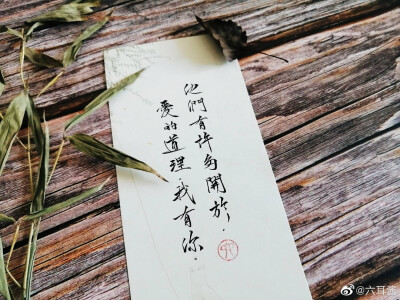 他們有許多關於，
愛的道理，我有你。
@六耳签